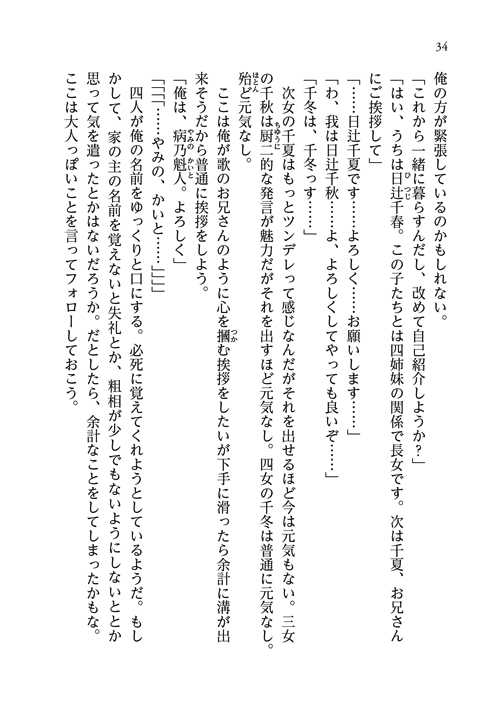 34
俺の方が緊張しているのかもしれない。
「これから一緒に暮らすんだし、改めて自己紹介しようか？」
「はい、うちは日辻千春。この子たちとは四姉妹の関係で長女です。次は千夏、お兄さん
にご挨拶して」
「……日辻千夏です……よろしく……お願いします……」
「わ、我は日辻千秋……よ、よろしくしてやっても良いぞ……」
「千冬は、千冬っす……」
次女の千夏はもっとツンデレって感じなんだがそれを出せるほど今は元気もない。三女
の千秋は厨二的な発言が魅力だがそれを出すほど元気なし。四女の千冬は普通に元気なし。
殆ど元気なし。
ここは俺が歌のお兄さんのように心を摑む挨拶をしたいが下手に滑ったら余計に溝が出
来そうだから普通に挨拶をしよう。
「俺は、病乃魁人。よろしく」
「「「「……やみの、かいと……」」」」
四人が俺の名前をゆっくりと口にする。必死に覚えてくれようとしているようだ。もし
かして、家の主の名前を覚えないと失礼とか、粗相が少しでもないようにしないととか
思って気を遣ったとかはないだろうか。だとしたら、余計なことをしてしまったかもな。
ここは大人っぽいことを言ってフォローしておこう。